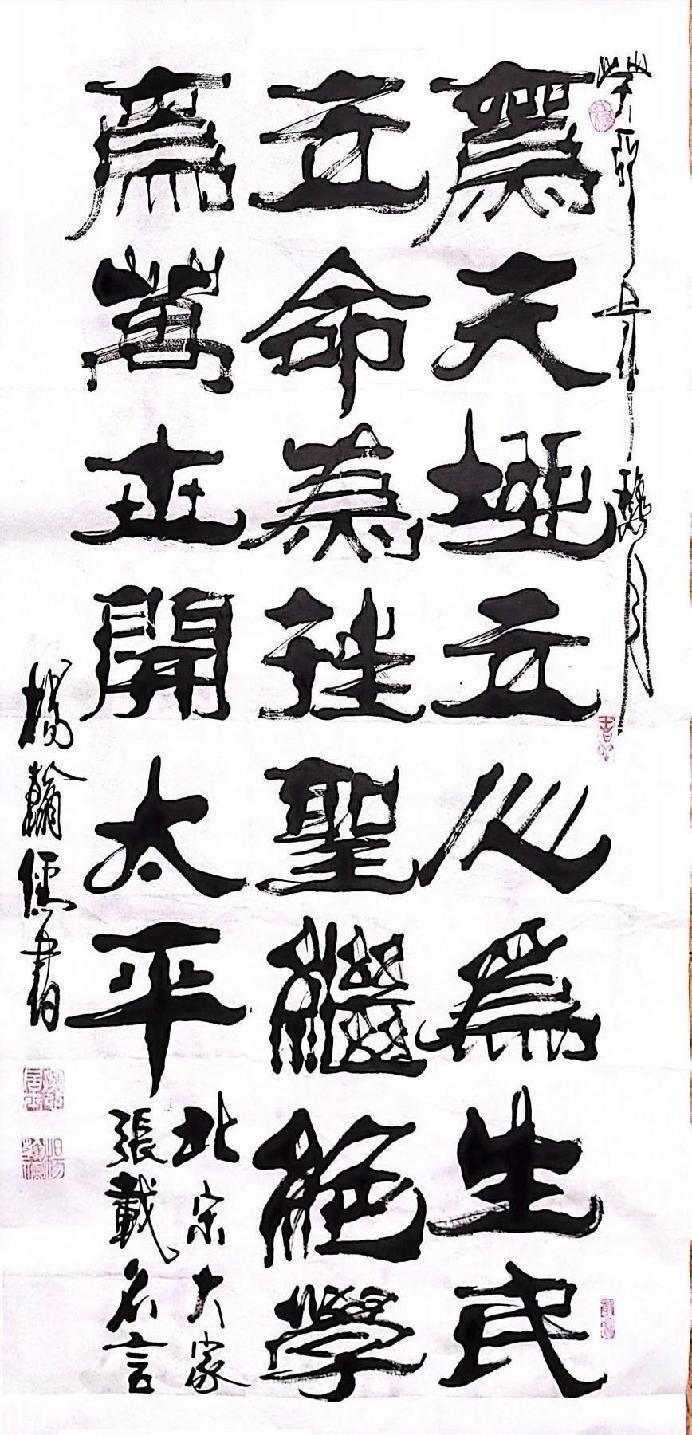 爲天地立心爲生民
立命為往聖繼絕學
爲萬世開太平
北宋大家
張載名言
楊翰儒書